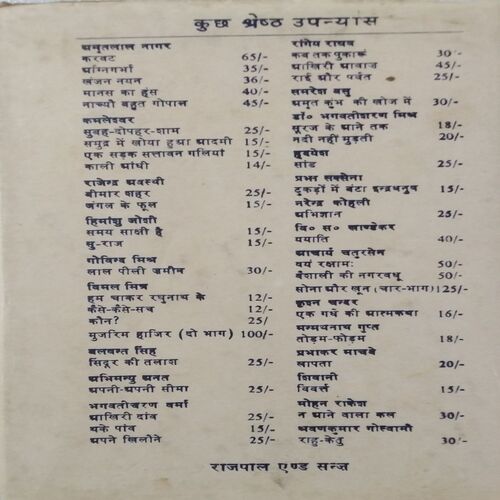 कुछ श्रेष्ठ उपन्यास
अमृतलाल नागर
करवट 65/-
अग्निगर्भा 35/-
खंजन नयन 36/-
मानस का हंस 40/-
नाच्यौ बहुत गोपाल 45/-
कमलेश्वर
सुबह-दोपहर-शाम 25/-
समुद्र में खोया हुआ आदमी 15/-
एक सड़क सत्तावन गलियां 15/-
काली आंधी 14/-
राजेन्द्र अवस्थी
बीमार शहर 25/-
जंगल के फूल 15/-
हिमांशु जोशी
समय साक्षी है 15/-
सु-राज 15/-
गोविन्द मिश्र
लाल पीली ज़मीन 30/-
विमल मित्र
हम चाकर रघुनाथ के 12/-
कैसे-कैसे-सच 12/-
कौन? 25/
मुजरिम हाजिर (दो भाग) 100/-
बलवन्त सिंह
सिंदूर की तलाश 25/-
अभिमन्यु अनत
अपनी-अपनी सीमा 25/-
भगवतीचरण वर्मा
आखिरी दांव 25/-
थके पांव 15/-
अपने खिलौने 25/-
रांगेय राघव
कब तक पुकारूं 30/-
आखिरी आवाज़ 45/-
राई और पर्वत 25/-
समरेश बसु
अमृत कुंभ की खोज में 30/-
डॉ० भगवतीशरण मिश्र
सूरज के आने तक 18/-
नदी नहीं मुड़ती 20/-
हृदयेश
सांड 25/-
प्रभा सक्सेना
टुकड़ों में बंटा इन्द्रधनुष 15/-
नरेन्द्र कोहली
अभिज्ञान 25/-
वि० स० खाण्डेकर
ययाति 40/-
आचार्य चतुरसेन
वयं रक्षामः 50/-
वैशाली की नगरवधू 50/-
सोना और खून (चार-भाग) 125/-
कृश्न चन्दर
एक गधे की आत्मकथा 16/-
मन्मथनाथ गुप्त
तोड़म-फोड़म 18/-
प्रभाकर माचवे
लापता 20/-
शिवानी
विवर्त्त 15/-
मोहन राकेश
न आने वाला कल 30/-
श्रवणकुमार गोस्वामी
राहु-केतु 30/-
राजपाल एण्ड सन्ज़